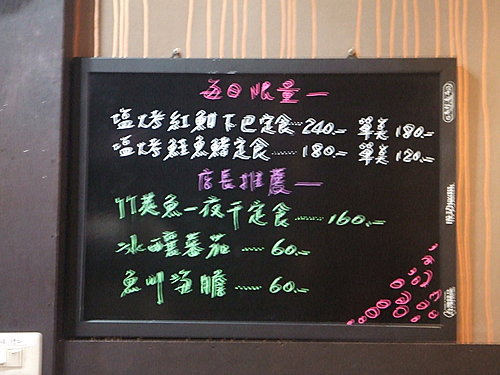 每日限量—
塩烤紅魽下巴定食……240.— 單美180.—
塩烤鮭魚鰭定食……180.— 單美120.—
店長推薦—
竹筴魚一夜干定食……160.—
冰釀蕃茄……60.—
魚卵海膽……60.—